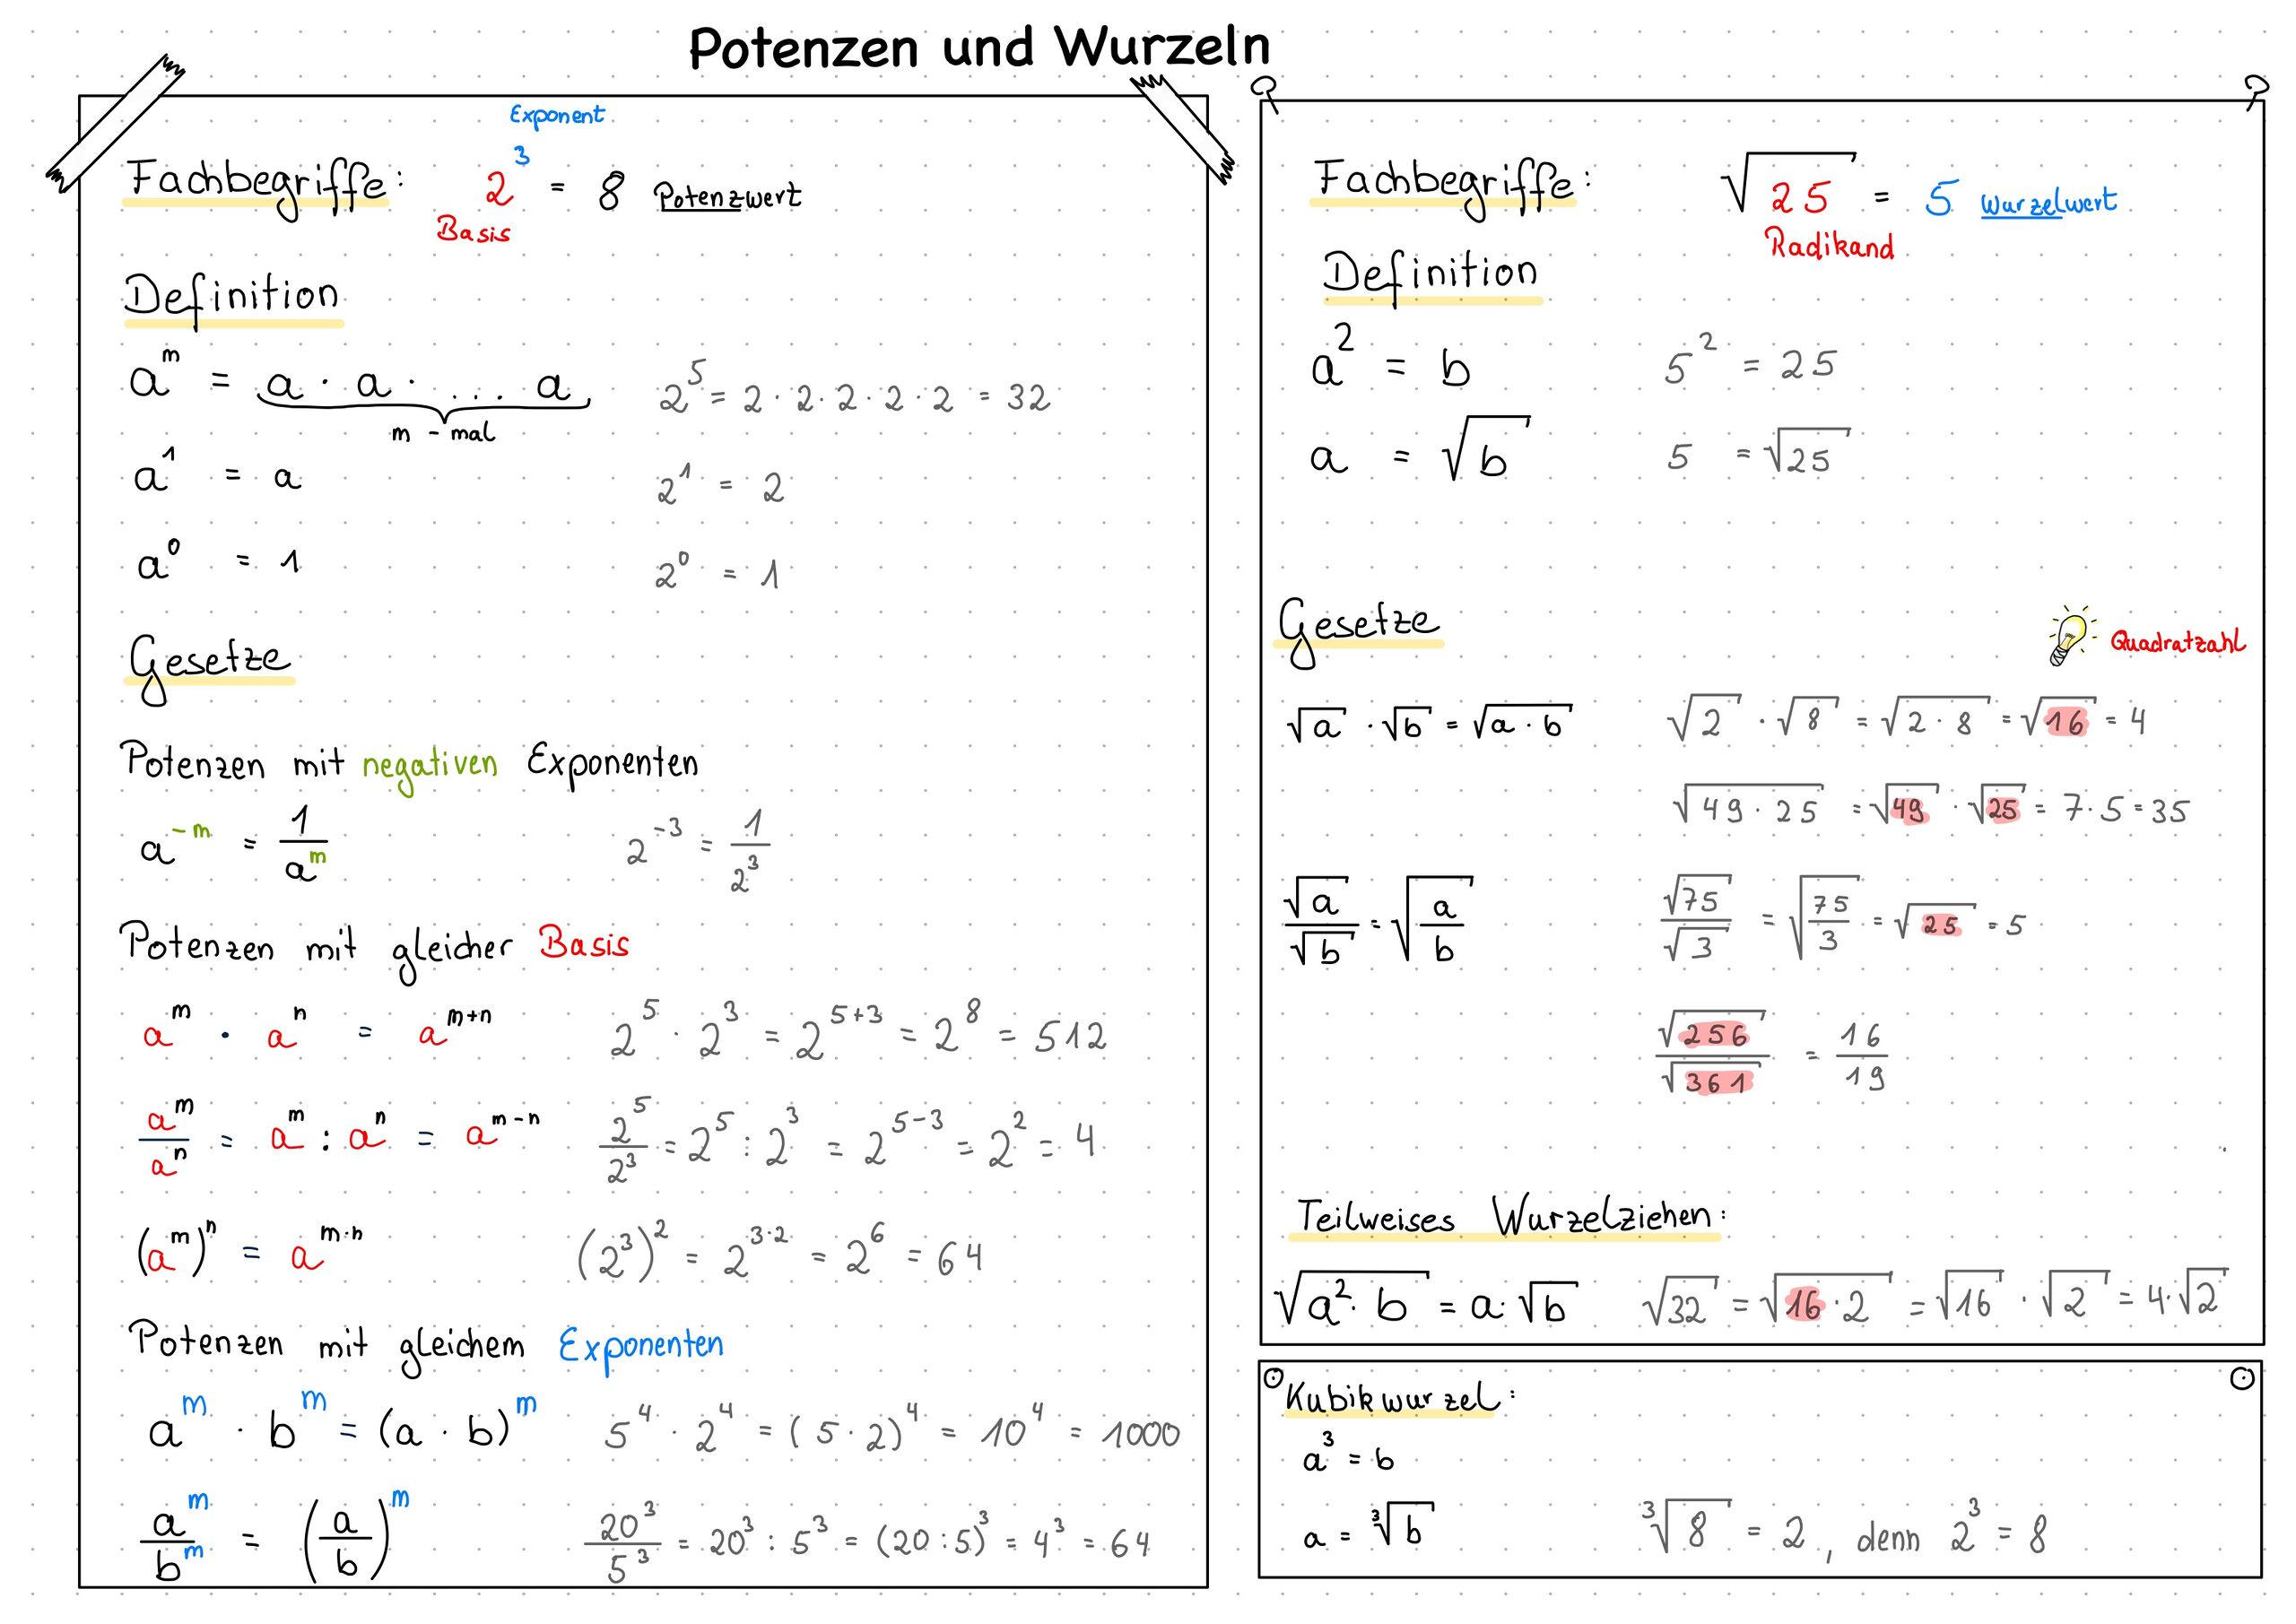 Potenzen und Wurzeln
Exponent
Fachbegriffe: 2³ = 8 Potenzwert
Basis
Definition
aᵐ = a · a · ... a
m - mal
2⁵ = 2 · 2 · 2 · 2 · 2 = 32
a¹ = a
2¹ = 2
a⁰ = 1
2⁰ = 1
Gesetze
Potenzen mit negativen Exponenten
a⁻ᵐ = 1/aᵐ
2⁻³ = 1/2³
Potenzen mit gleicher Basis
aᵐ · aⁿ = aᵐ⁺ⁿ
2⁵ · 2³ = 2⁵⁺³ = 2⁸ = 512
aᵐ/aⁿ = aᵐ : aⁿ = aᵐ⁻ⁿ
2⁵/2³ = 2⁵ : 2³ = 2⁵⁻³ = 2² = 4
(aᵐ)ⁿ = a^(m·n)
(2³)² = 2^(3·2) = 2⁶ = 64
Potenzen mit gleichem Exponenten
aᵐ · bᵐ = (a · b)ᵐ
5⁴ · 2⁴ = (5 · 2)⁴ = 10⁴ = 1000
aᵐ/bᵐ = (a/b)ᵐ
20³/5³ = 20³ : 5³ = (20 : 5)³ = 4³ = 64
Fachbegriffe: √25 = 5 Wurzelwert
Radikand
Definition
a² = b
5² = 25
a = √b
5 = √25
Gesetze
Quadratzahl
√a · √b = √(a · b)
√2 · √8 = √(2 · 8) = √16 = 4
√(49 · 25) = √49 · √25 = 7 · 5 = 35
√a/√b = √(a/b)
√75/√3 = √(75/3) = √25 = 5
√256/√361 = 16/19
Teilweises Wurzelziehen:
√(a² · b) = a · √b
√32 = √(16 · 2) = √16 · √2 = 4 · √2
Kubikwurzel:
a³ = b
a = ³√b
³√8 = 2, denn 2³ = 8